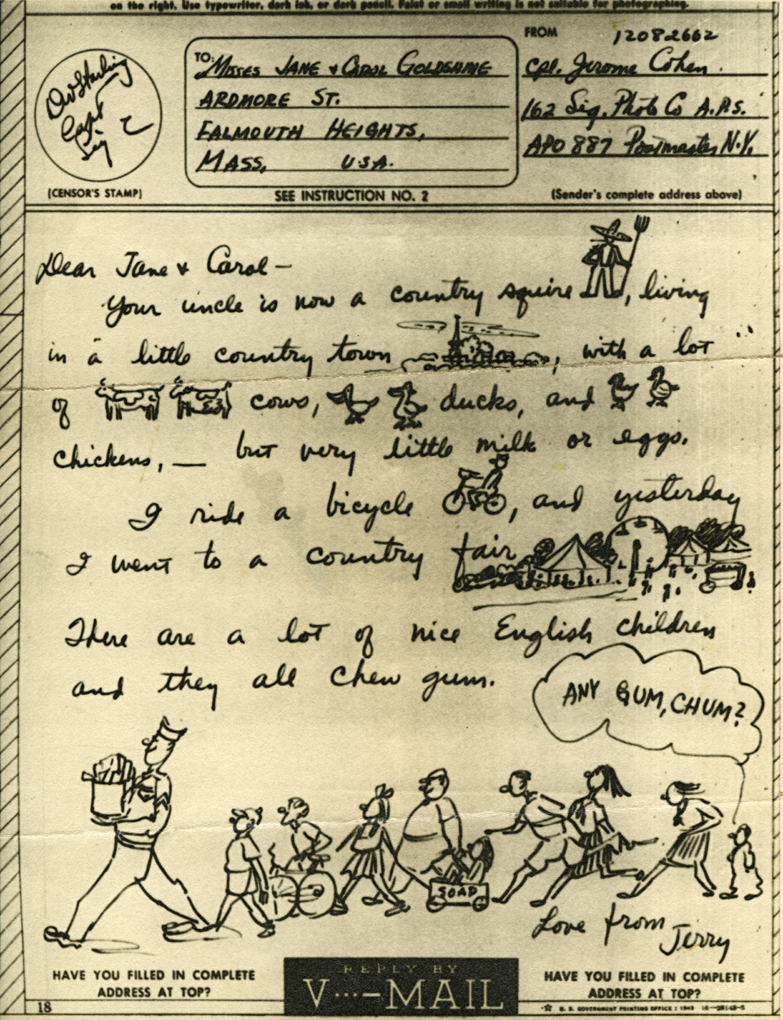 on the right. Use typewriter, dark ink, or dark pencil. Faint or small writing is not suitable for photographing.
Capt
Sig C
(CENSOR'S STAMP)
TO:
Misses JANE & CAROL
ARDMORE ST.
FALMOUTH HEIGHTS,
MASS, U.S.A.
SEE INSTRUCTION NO. 2
FROM
12082662
Cpl. Jerome Cohen
162 Sig. Photo Co A.P.S.
APO 887 Postmaster N.Y.
(Sender's complete address above)
Dear Jane & Carol —
Your uncle is now a country squire, living
in a little country town, with a lot
of cows, ducks, and
chickens, — but very little milk or eggs.
I ride a bicycle, and yesterday
I went to a country fair
There are a lot of nice English children
and they all chew gum.
ANY GUM, CHUM?
SOAP
Love from
Jerry
HAVE YOU FILLED IN COMPLETE
ADDRESS AT TOP?
REPLY BY
V···—MAIL
HAVE YOU FILLED IN COMPLETE
ADDRESS AT TOP?
18
U. S. GOVERNMENT PRINTING OFFICE : 1943